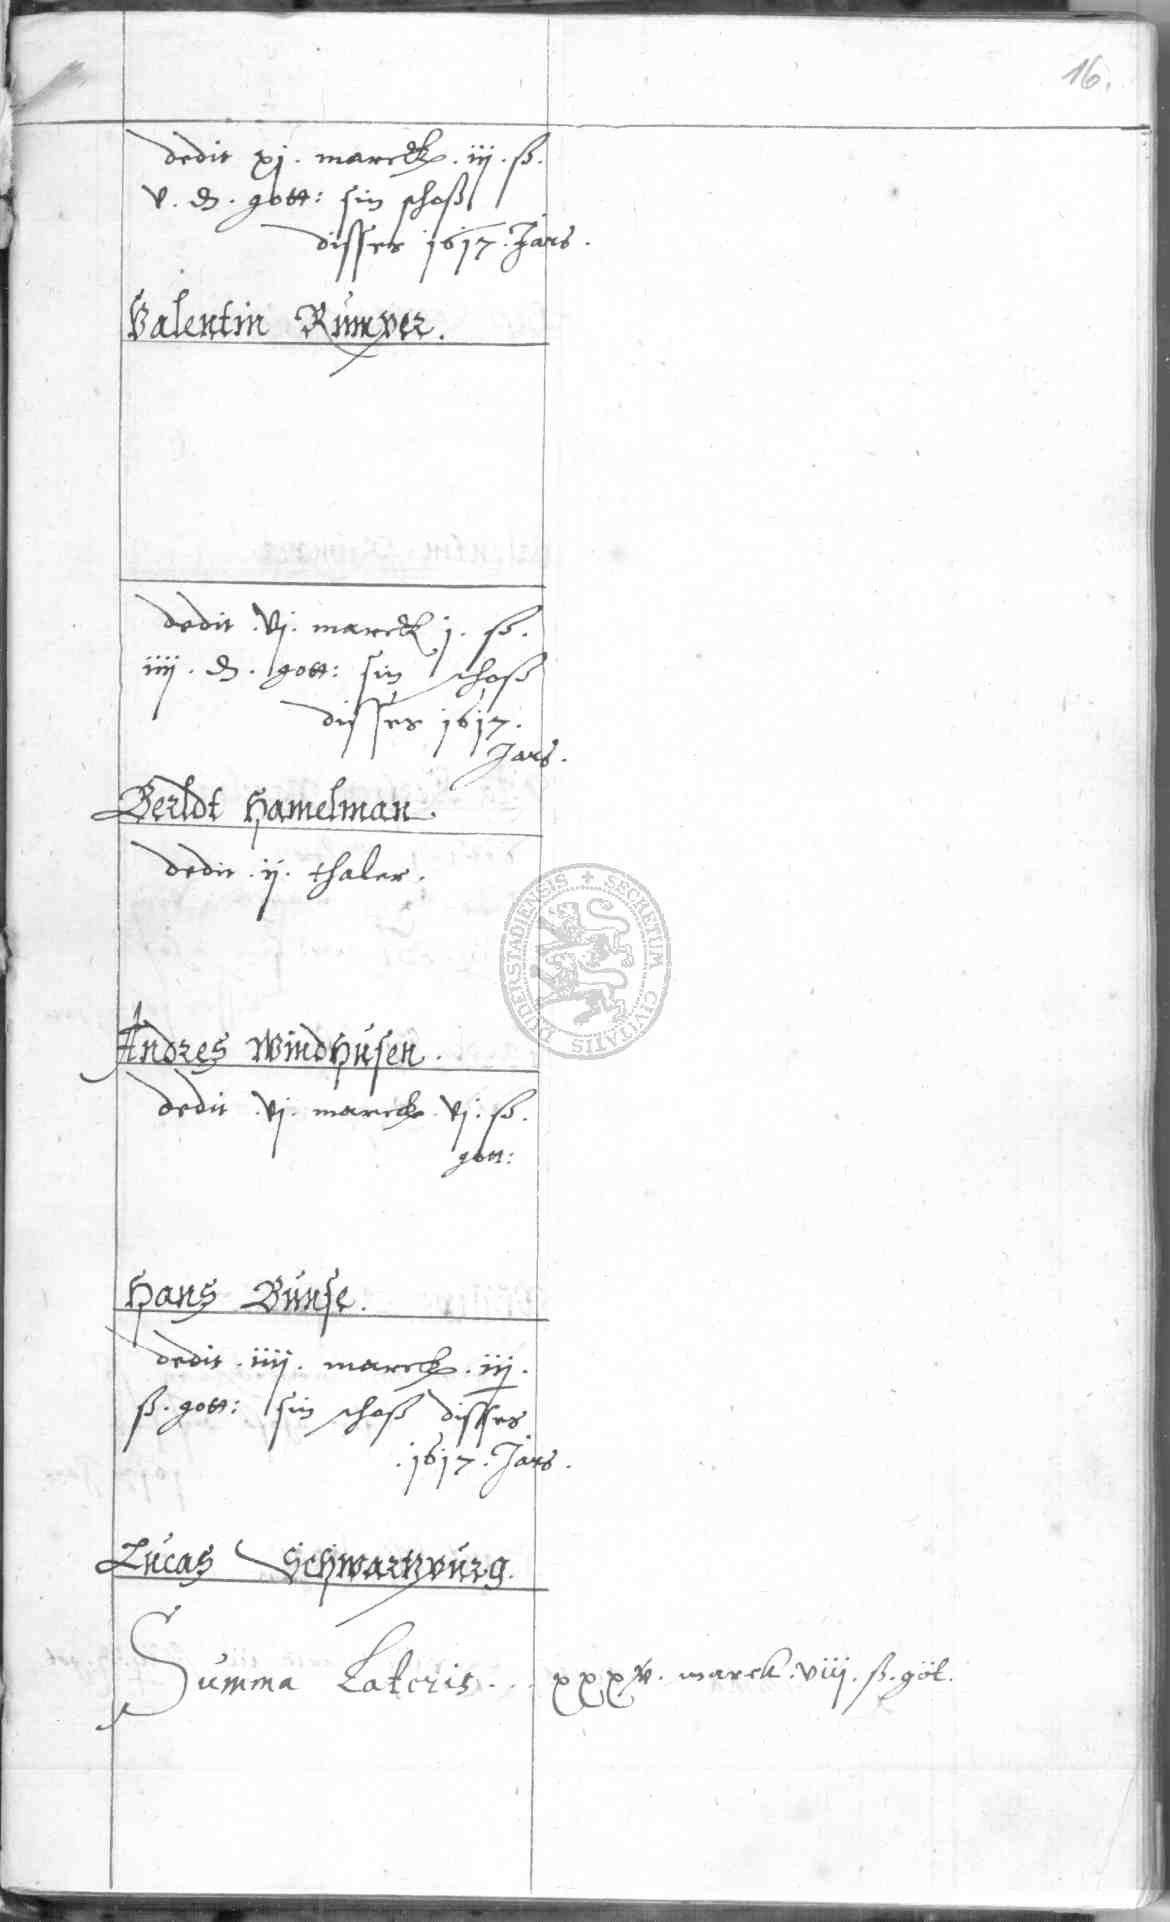 16.
dedit xj. marck. iij. ß.
v. d. gott: sin schoß
disses 1617. Jars.
Valentin Rümver.
dedit. vj. marck j. ß.
iiij. d. gott: sin schoß
disses 1617.
Jars.
Berldt Hamelman.
dedit. ij. thaler.
SECRETUM CIVITATIS DUDERSTADIENSIS
Andres Windhusen.
dedit. vj. marck. vj. ß.
gott:
Hans Bünse.
dedit. iiij. marck. iij.
ß. gott: sin schoß disses
. 1617. Jars.
Lucas Schwartzvürg.
Summa Lateris... xxxv. marck. viij. ß. göt.